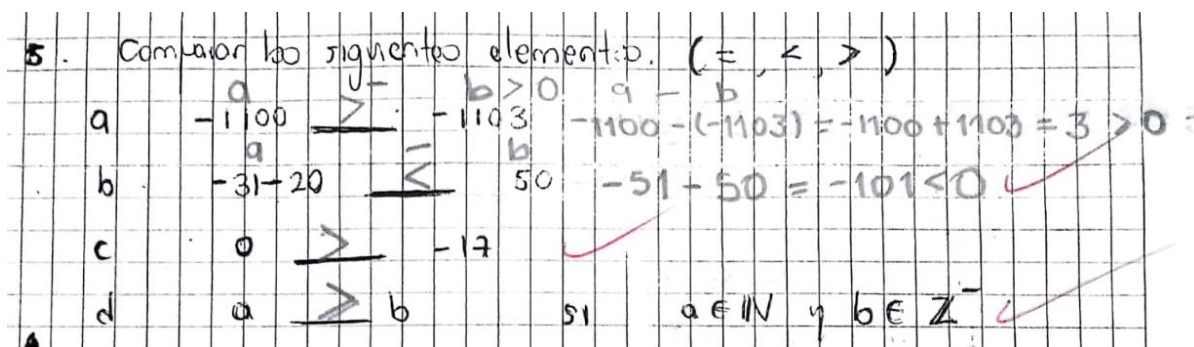 5. Comparar los siguientes elementos. (=, <, >)
a - b > 0 a - b
a -1100 > -1103 -1100 - (-1103) = -1100 + 1103 = 3 > 0
a - b
b -31-20 < 50 -51 - 50 = -101 < 0
c 0 > -17
d a > b si a ∈ ℕ y b ∈ ℤ⁻